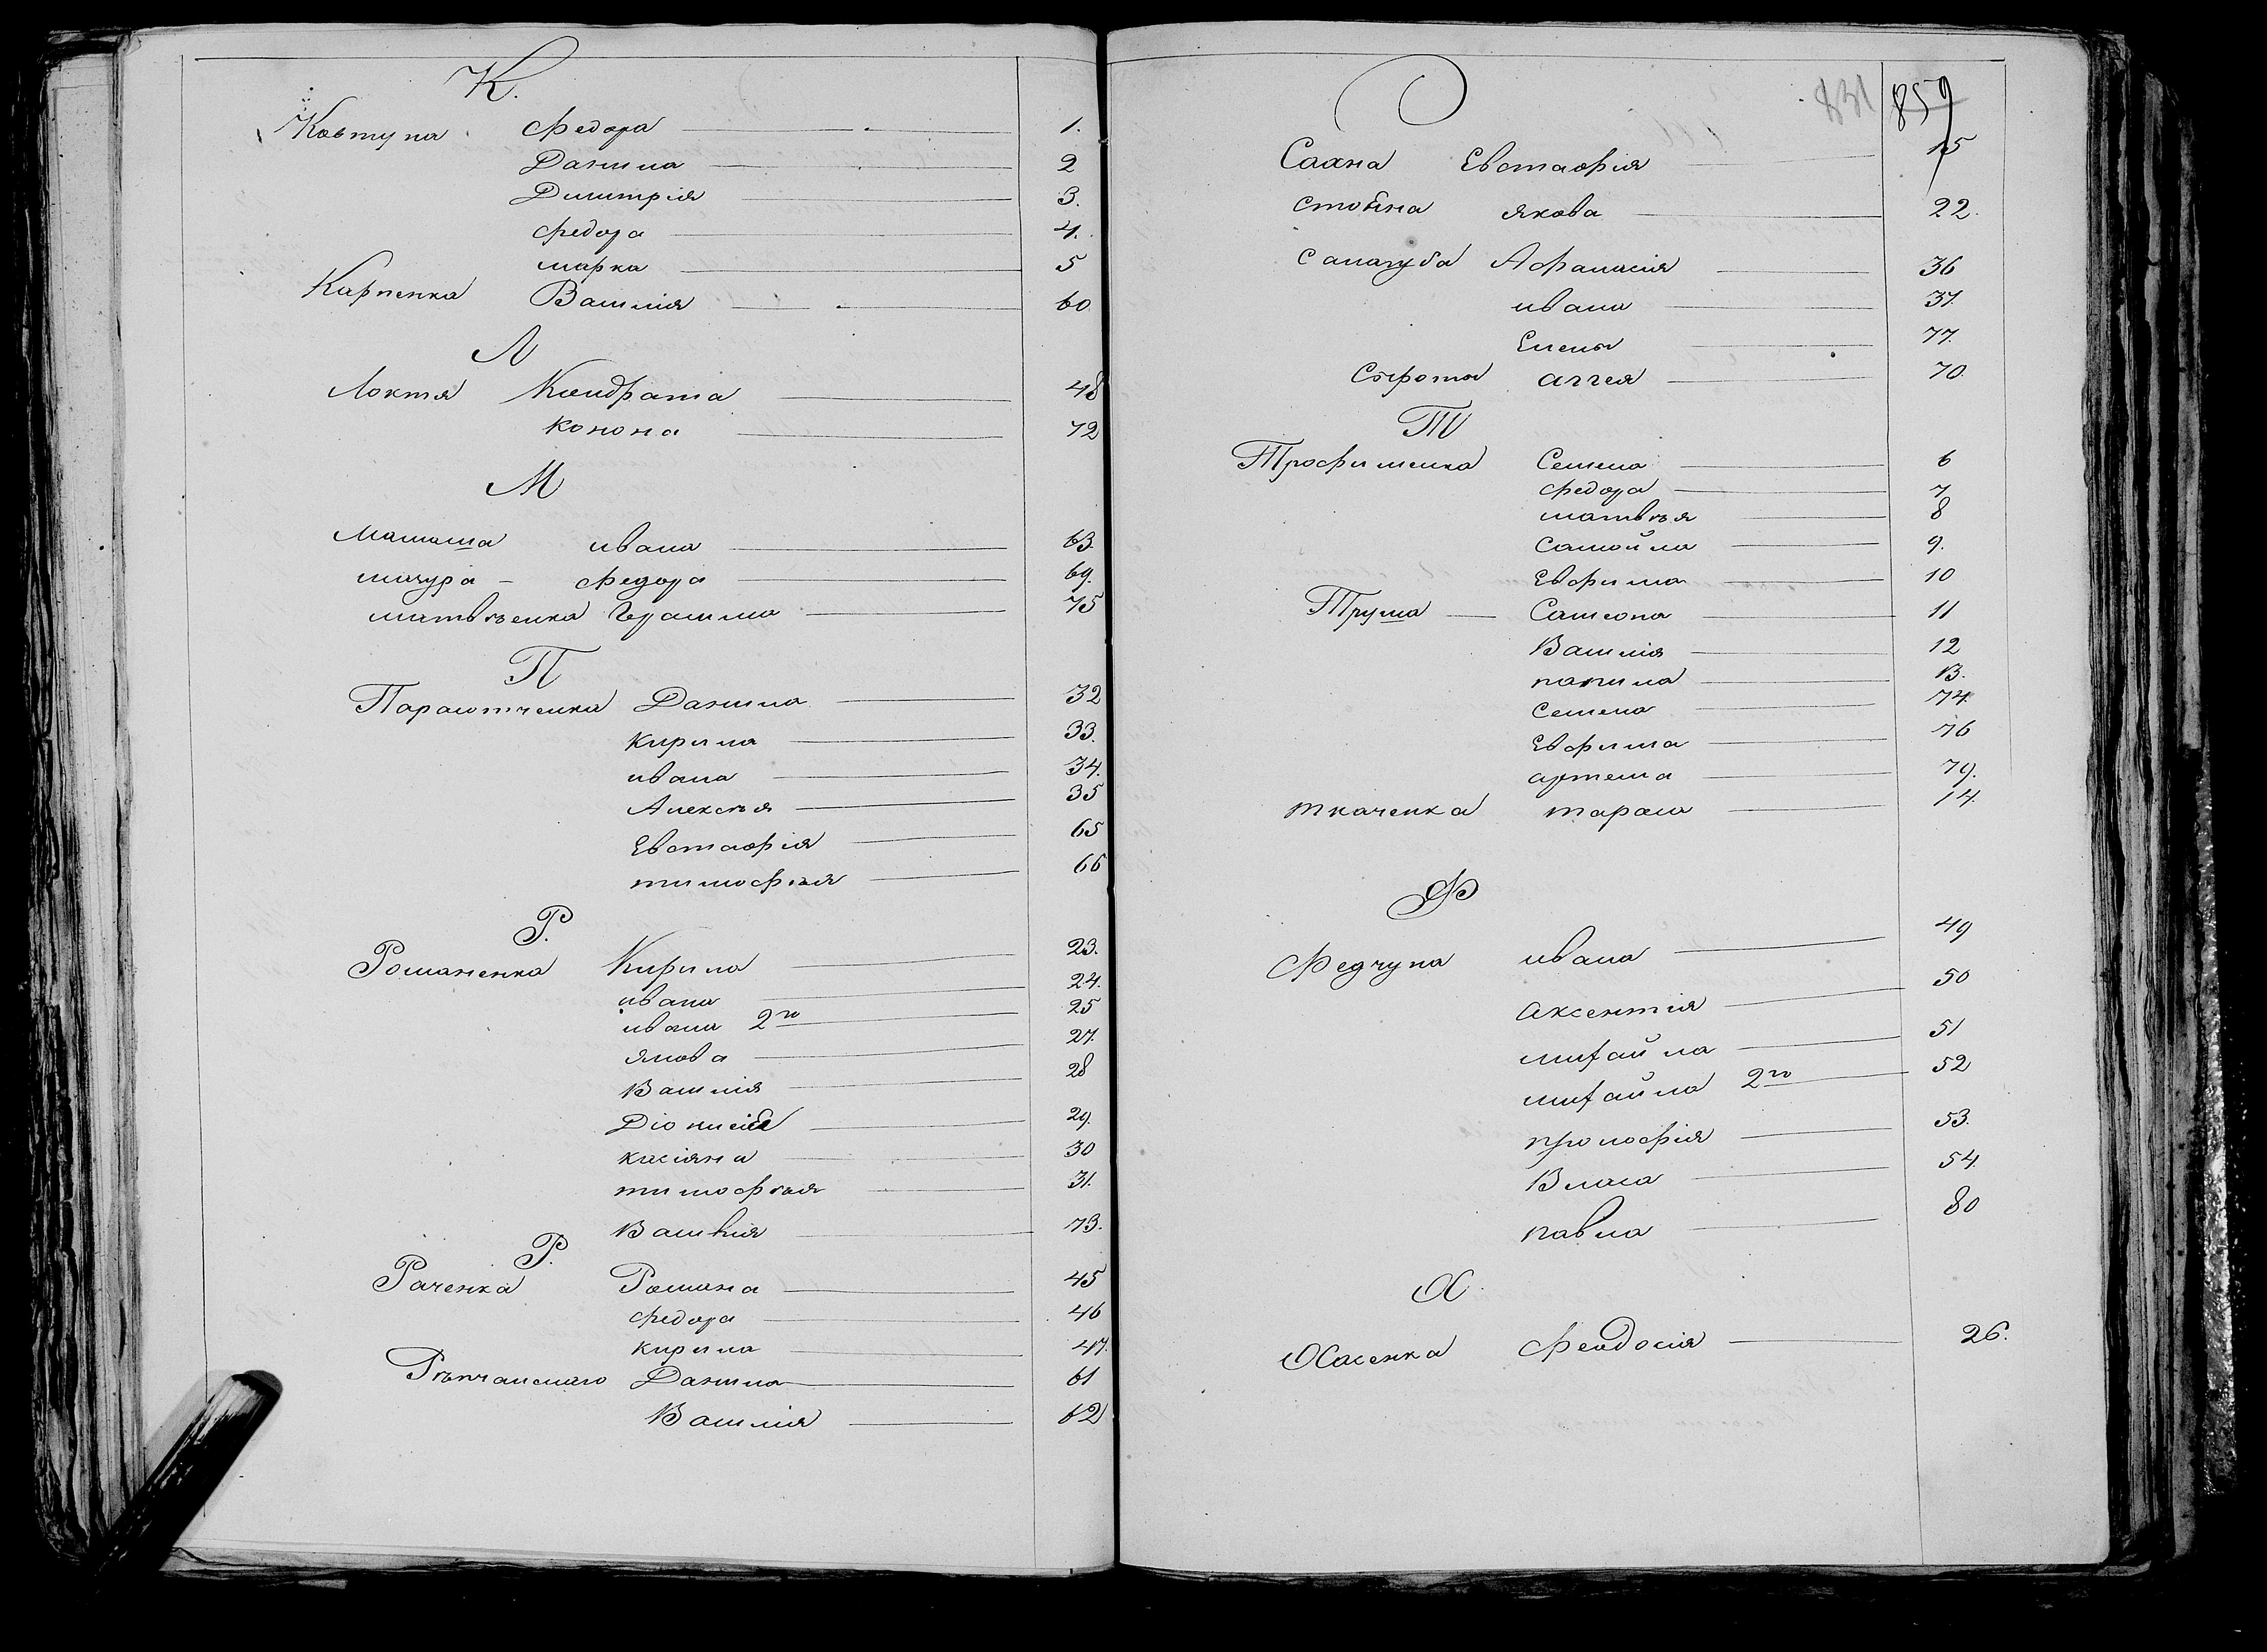 К.
Ковтуна Федора 1.
Данила 2
Дмитрія 3.
Федора 4.
марка 5
Карпенка Василія 60
Л
Локтя Кондрата 48
Конона 72
М
ивана 63.
мазура Федора 69.
матвѣенка Герасима 75
П
Данила 32
Кирила 33.
ивана 34.
Алексѣя 35
Евстафія 65
тимофѣя 66
Р.
Романенка Кирила 23.
ивана 24.
ивана 2го 25
якова 27.
Василія 28
Діонисія 29.
касіяна 30
тимофѣя 31.
Василія 73.
Р.
Раченка Романа 45
Федора 46
Кирила 47.
Рѣпчанскаго Данила 61
Василія 62
831 859
С
Саана Евстафія 15
якова 22.
Самагуба Афанасія 36
ивана 37.
Елены 77.
Сыроты аггея 70.
Т
Трофименка Семена 6
Федора 7
матвѣя 8
Самойла 9.
Евфима 10
Труша Самсона 11
Василія 12
13.
Семена 74.
Евфима 76
артема 79.
ткаченка тараса 14.
Ф
Федчуна ивана 49
Аксентія 50
михайла 51
михайла 2го 52
прокофія 53.
Власа 54.
павла 80
Х.
Хасенка Феодосія 26.